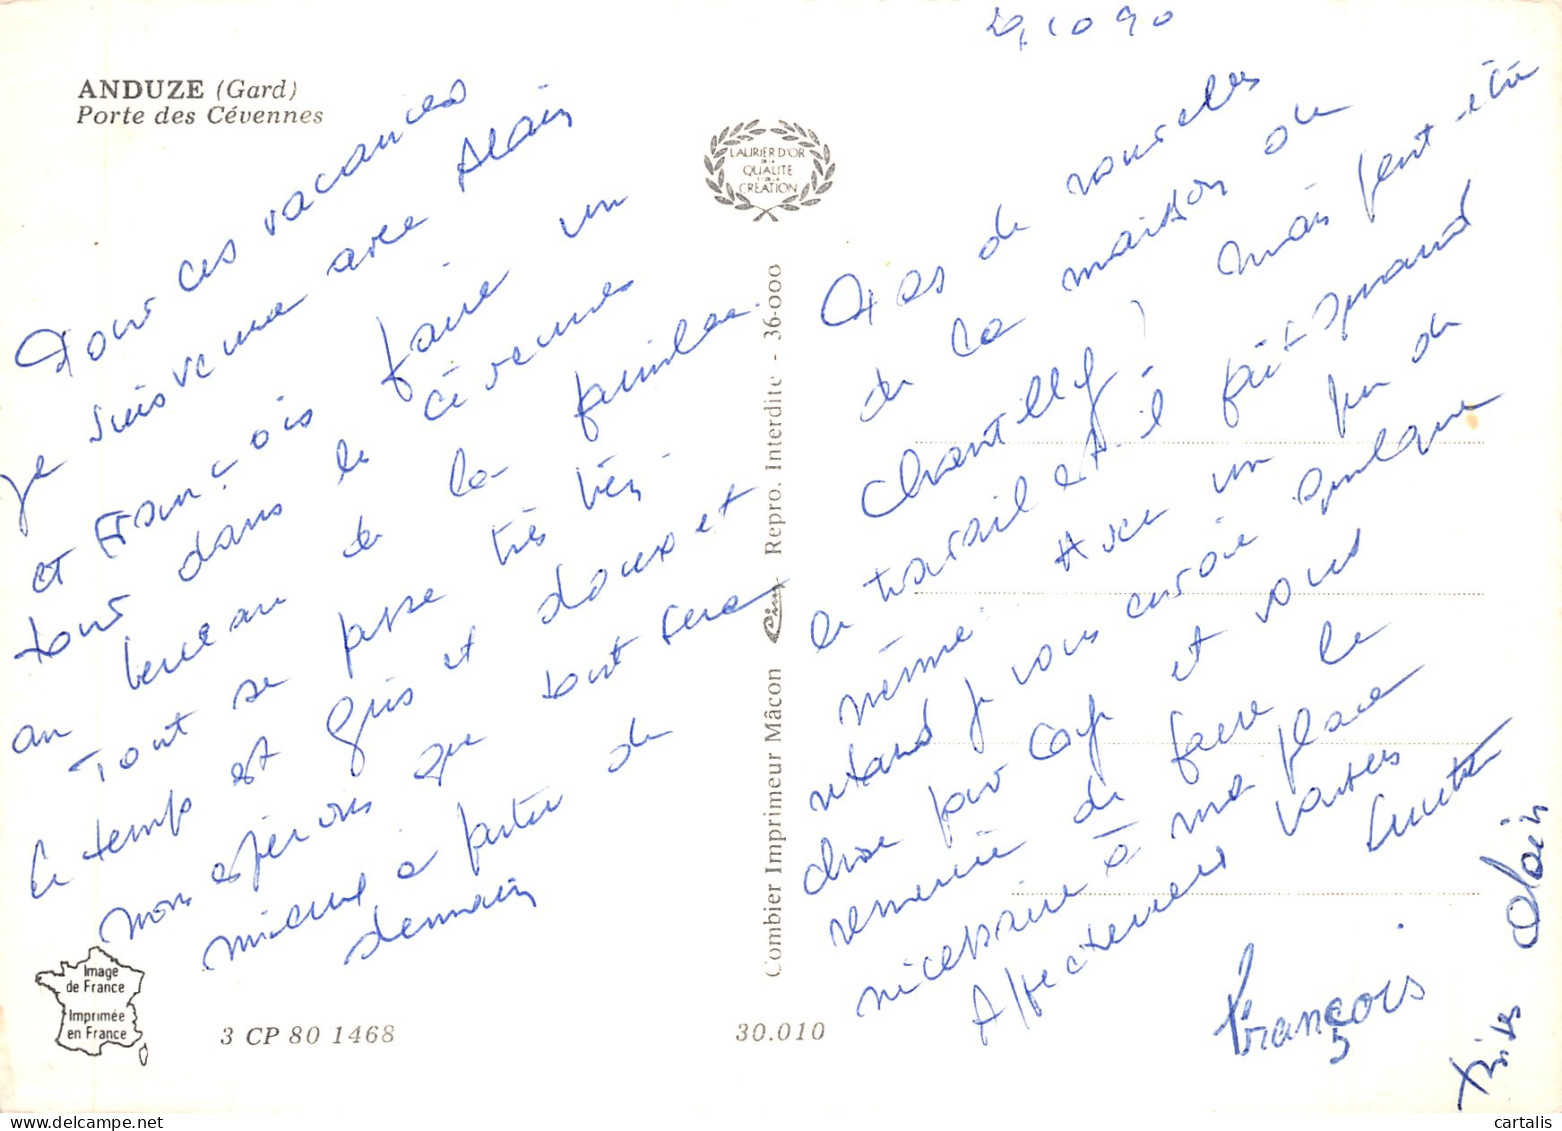 ANDUZE (Gard)
Porte des Cévennes
10 90
Pour ces vacances
je suis venue avec Alain
et François faire un
tour dans les Cévennes
au berceau de la famille.
Tout se passe très bien.
le temps est gris et doux et
nous espérons que tout sera
mieux à partir de
demain
Image
de France
Imprimée
en France
3 CP 80 1468
30.010
LAURIER D'OR
DE LA
QUALITE
ET DE LA
CREATION
Combier Imprimeur Mâcon Cim Repro. Interdite - 36-000
Pas de nouvelles
de la maison de
Chantilly! Mais peut-être
le travail est-il fait quand
même. Avec un peu de
retard je vous envoie quelque
chose par CCP et vous
remercie de faire le
nécessaire à ma place
Affectueuses
François
Bises
Alain
cartalis